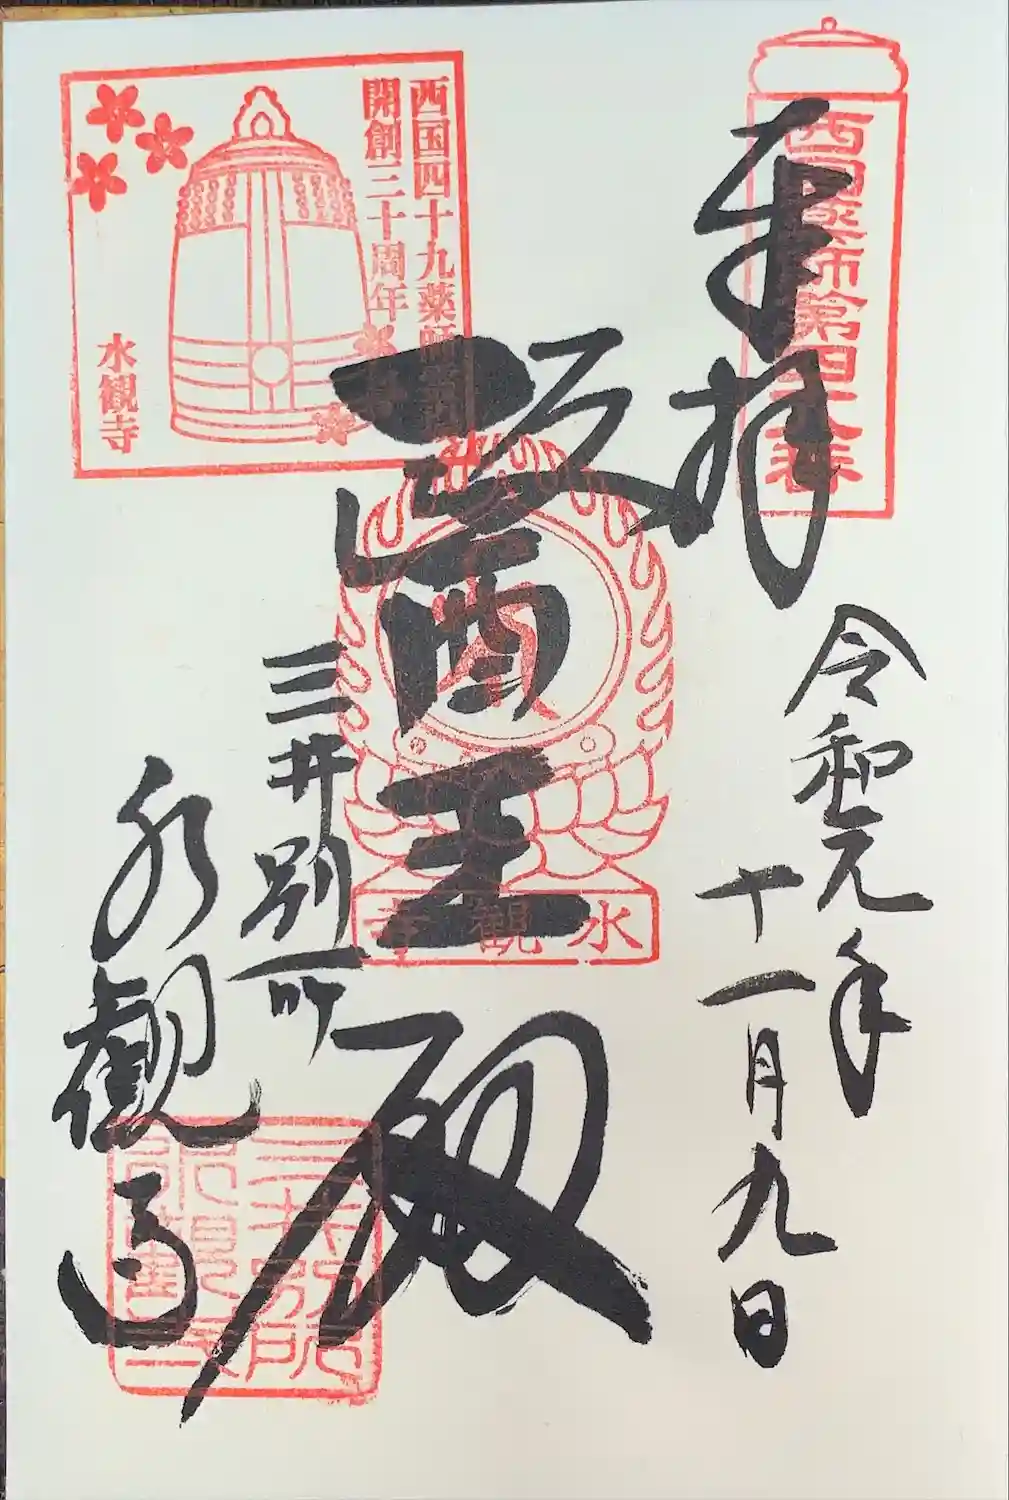 奉拝
令和元年
十一月九日
醫王殿
三井別所
水観寺
西国薬師第四十八番
西国四十九薬師霊場
開創三十周年
水観寺
水観寺